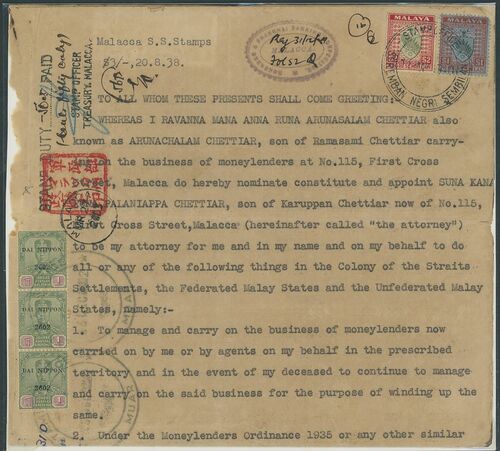 MALAYA
MALAYA
Malacca S.S.Stamps
$3/-, 20.8.38.
STAMP OFFICER
TREASURY, MALACCA.
STAMP OFFICE
SEREMBAN, NEGRI SEMBILAN
TO ALL WHOM THESE PRESENTS SHALL COME GREETING:
WHEREAS I RAVANNA MANA ANNA RUNA ARUNASALAM CHETTIAR also
known as ARUNACHALAM CHETTIAR, son of Ramasami Chettiar carry-
ing on the business of moneylenders at No.115, First Cross
Street, Malacca do hereby nominate constitute and appoint SUNA KANA
PALANIAPPA CHETTIAR, son of Karuppan Chettiar now of No.115,
First Cross Street,Malacca (hereinafter called "the attorney")
to be my attorney for me and in my name and on my behalf to do
all or any of the following things in the Colony of the Straits
Settlements, the Federated Malay States and the Unfederated Malay
States, namely:-
1. To manage and carry on the business of moneylenders now
carried on by me or by agents on my behalf in the prescribed
territory and in the event of my deceased to continue to manage
and carry on the said business for the purpose of winding up the
same.
2. Under the Moneylenders Ordinance 1935 or any other similar
DAI NIPPON
2602
DAI NIPPON
2602
DAI NIPPON
2602
MUAR